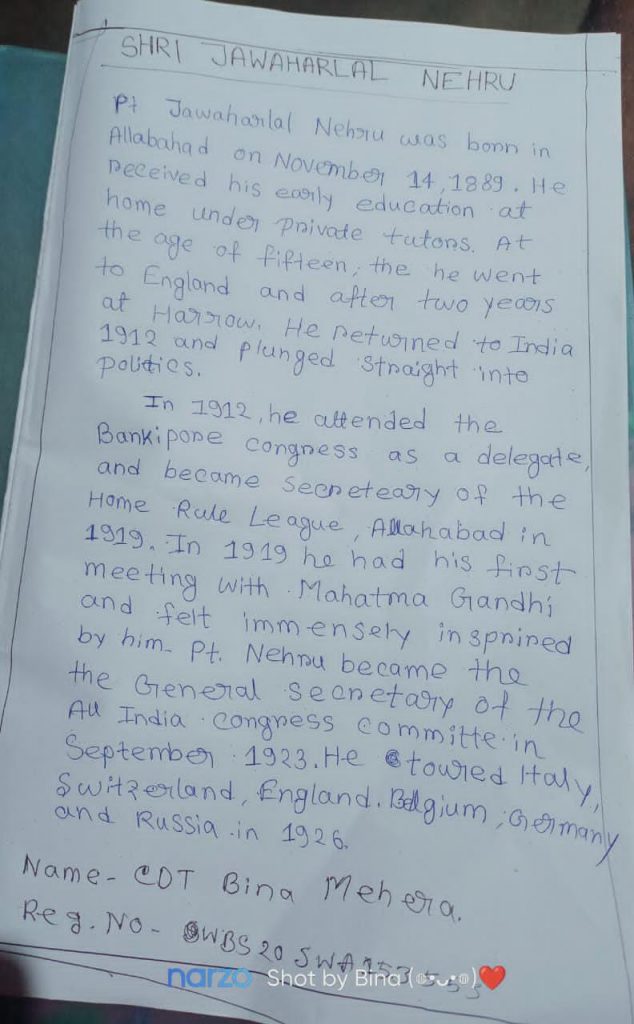 SHRI JAWAHARLAL NEHRU
Pt Jawaharlal Nehru was born in
Allabahad on November 14, 1889. He
received his early education at
home under private tutors. At
the age of fifteen, the he went
to England and after two years
at Harrow. He returned to India
1912 and plunged straight into
politics.
In 1912, he attended the
Bankipore congress as a delegate,
and became secreteary of the
Home Rule League, Allahabad in
1919. In 1919 he had his first
meeting with Mahatma Gandhi
and felt immensely insprired
by him. Pt. Nehru became the
the General secretary of the
All India congress committe in
September 1923. He toured Italy,
Switzerland, England, Belgium, Germany
and Russia in 1926.
Name - CDT Bina Mehera.
Reg. No - WBS20SWA
narzo Shot by Bina (๑•ᴗ•๑)❤️